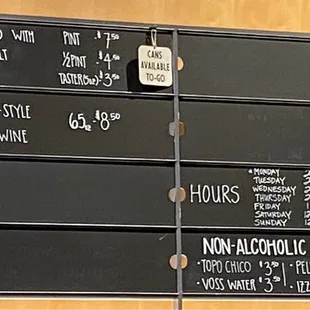 WITH PINT $7.50
½ PINT $4.50
TASTER (5oz) $3.50
CANS
AVAILABLE
TO-GO
-STYLE 65oz $8.50
WINE
HOURS
MONDAY
TUESDAY
WEDNESDAY
THURSDAY
FRIDAY
SATURDAY
SUNDAY
NON-ALCOHOLIC
-TOPO CHICO $3.50 - PEL
-VOSS WATER $3.50 - IZZ